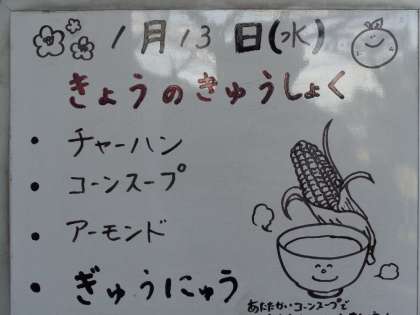 1月13日(水)
きょうのきゅうしょく
・チャーハン
・コーンスープ
・アーモンド
・ぎゅうにゅう
あたたかいコーンスープで